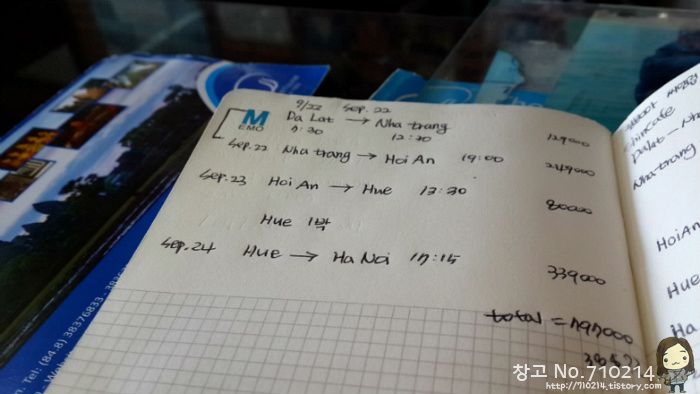 9/22 Sep. 22
M
EMO
Da Lat → Nha trang
7:30 12:30 129000
Sep.22 Nha trang → Hoi An 19:00 249000
Sep.23 Hoi An → Hue 13:30 80000
Hue 1박
Sep.24 Hue → Ha Noi 17:15 339000
total = 797000
Dalat - Nha
Nha trang
Hoi An
Hue
Ha
Tel: (84.8) 38376833 - 383
창고 No.710214
http://710214.tistory.com/